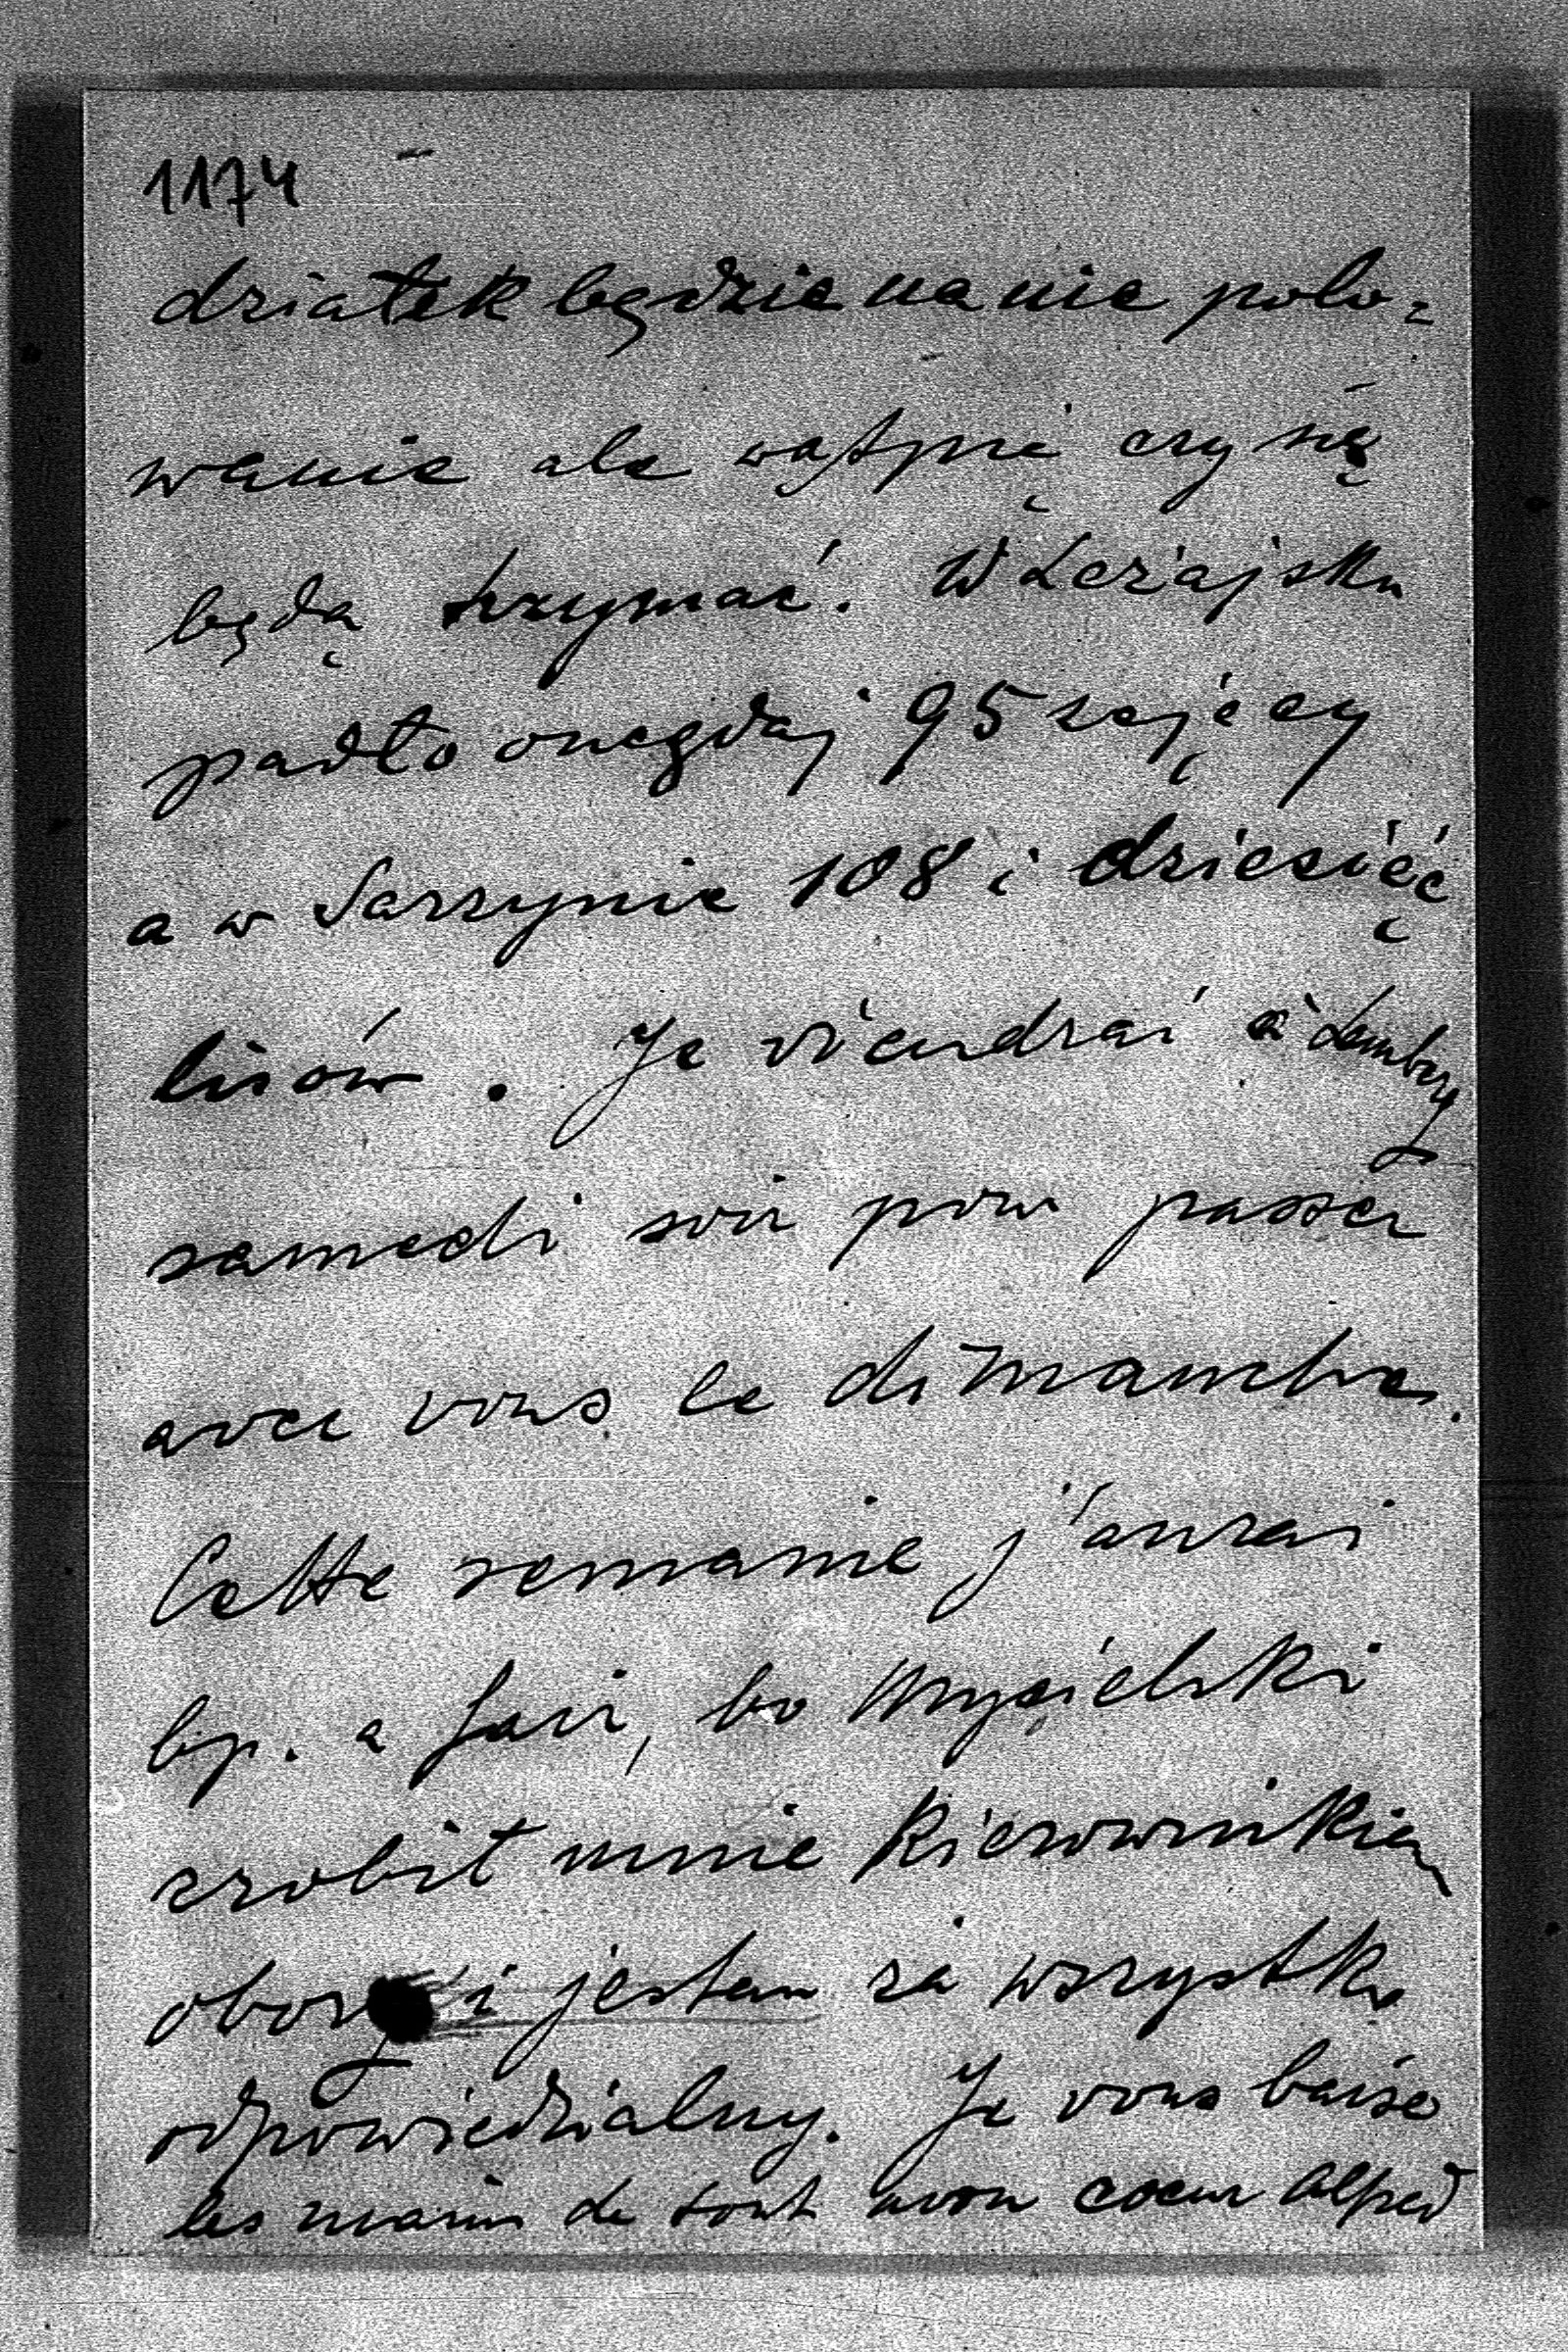 1174
działek będzie na nie polo=
wanie ale wątpię czy się
będą trzymać. W Leżajsku
padło onegdaj 95 zajęcy
a w Sarzynie 108 i dziesięć
lisów. Je viendrai à Lemberg
samedi soir pour passer
avec vous le dimanche.
Cette semanie j'aurai
bp. a fair, bo Mycielski
zrobił mnie kierownikiem
obory i jestem za wszystko
odpowiedzialny. Je vous baise
les mains de tout mon coeur Alfred